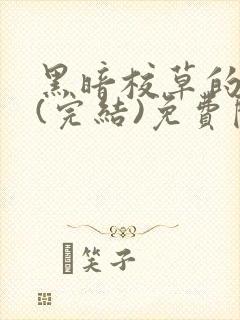 黑暗校草的
(完結)免費
笑子